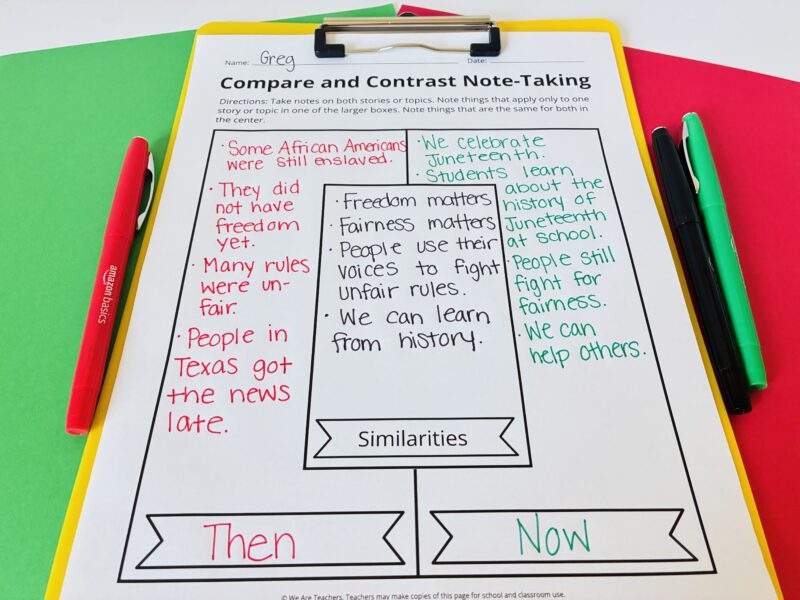 Name: Greg Date:
Compare and Contrast Note-Taking
Directions: Take notes on both stories or topics. Note things that apply only to one
story or topic in one of the larger boxes. Note things that are the same for both in
the center.
· Some African Americans
were still enslaved.
· They did
not have
freedom
yet.
· Many rules
were un-
fair.
· People in
Texas got
the news
late.
· Freedom matters
· Fairness matters
· People use their
voices to fight
unfair rules.
· We can learn
from history.
Similarities
· We celebrate
Juneteenth.
· Students learn
about the
history of
Juneteenth
at school.
· People still
fight for
fairness.
· We can
help others.
Then
Now
© We Are Teachers. Teachers may make copies of this page for school and classroom use.
amazon basics